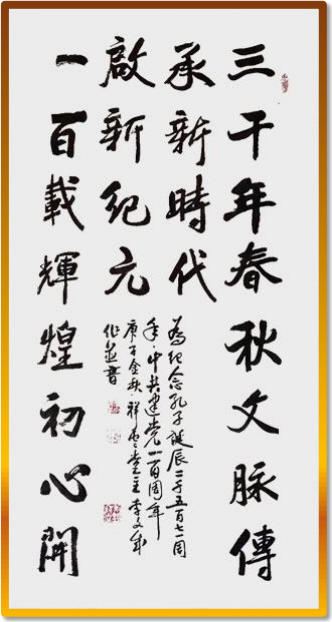 三千年春秋文脈傳
承新時代
啟新紀元
一百載輝煌初心開
為紀念孔子誕辰二千五百七一周
年·中共建党一百周年
庚子金秋·祥雲堂主李文成
作並書